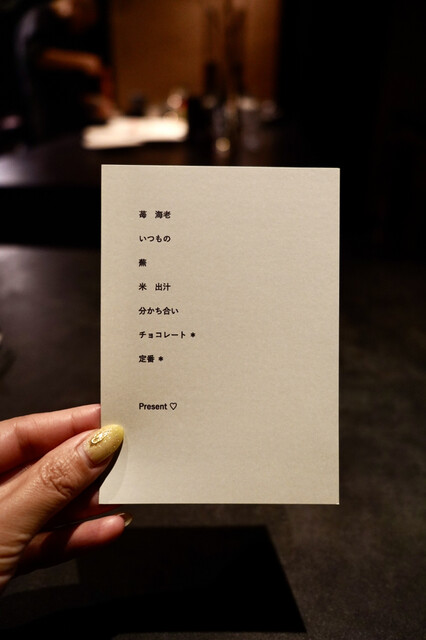 苺　海老
いつもの
蕪
米　出汁
分かち合い
チョコレート *
定番 *
Present ♡